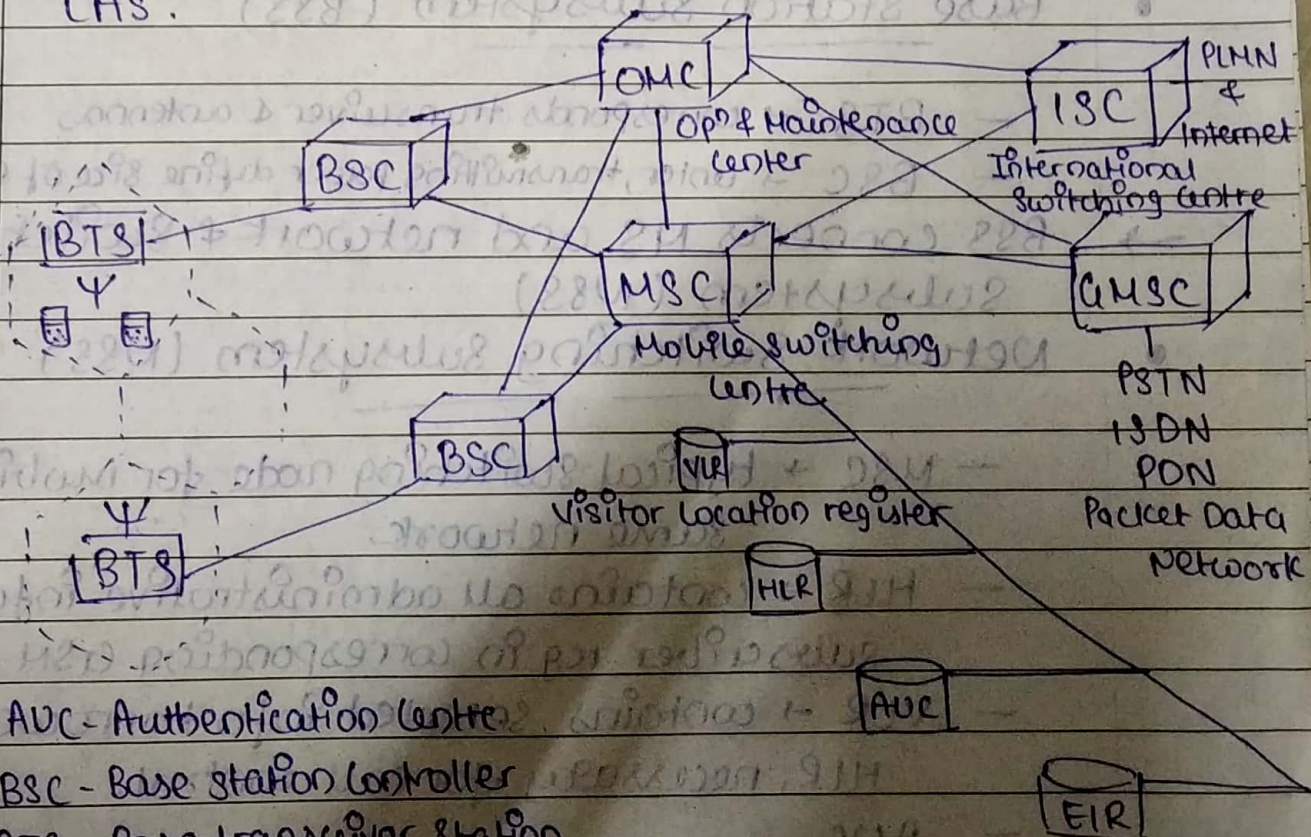 CAS.
OMC
Opn & Maintenance
Center
ISC
PLMN
&
Internet
International
Switching Centre
BSC
BTS
MSC
Mobile Switching
Centre
GMSC
PSTN
ISDN
PDN
Packet Data
Network
BSC
VLR
Visitor Location register
BTS
HLR
AUC
AUC - Authentication Centre
BSC - Base Station Controller
EIR